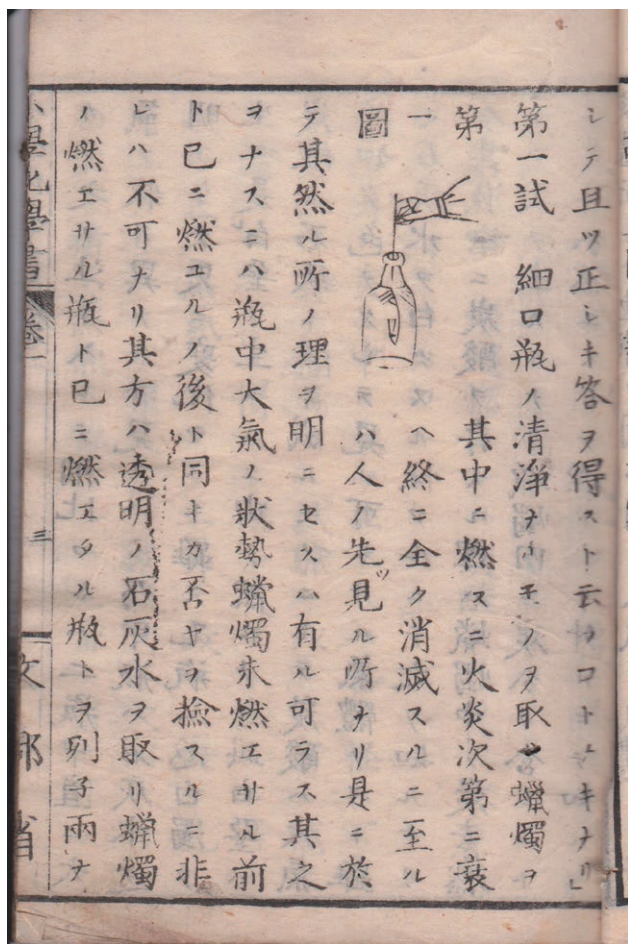 シテ且ツ正シキ答ヲ得スト云フコトナキナリ」
第一試　細口瓶ノ清淨ナルモノヲ取リ蠟燭ヲ
其中ニ燃スニ火炎次第ニ衰
ヘ終ニ全ク消滅スルニ至ル
ハ人ノ先ツ見ル所ナリ是ニ於
第一圖
テ其然ル所ノ理ヲ明ニセスハ有ル可ラス其之
ヲナスニハ瓶中大氣ノ狀勢蠟燭未燃エサル前
ト已ニ燃ユルノ後ト同キカ否ヤヲ撿スルニ非
レハ不可ナリ其方ハ透明ノ石灰水ヲ取リ蠟燭
ノ燃エサル瓶ト已ニ燃エタル瓶トヲ列子兩ナ
小學化學書　卷一　三　文部省